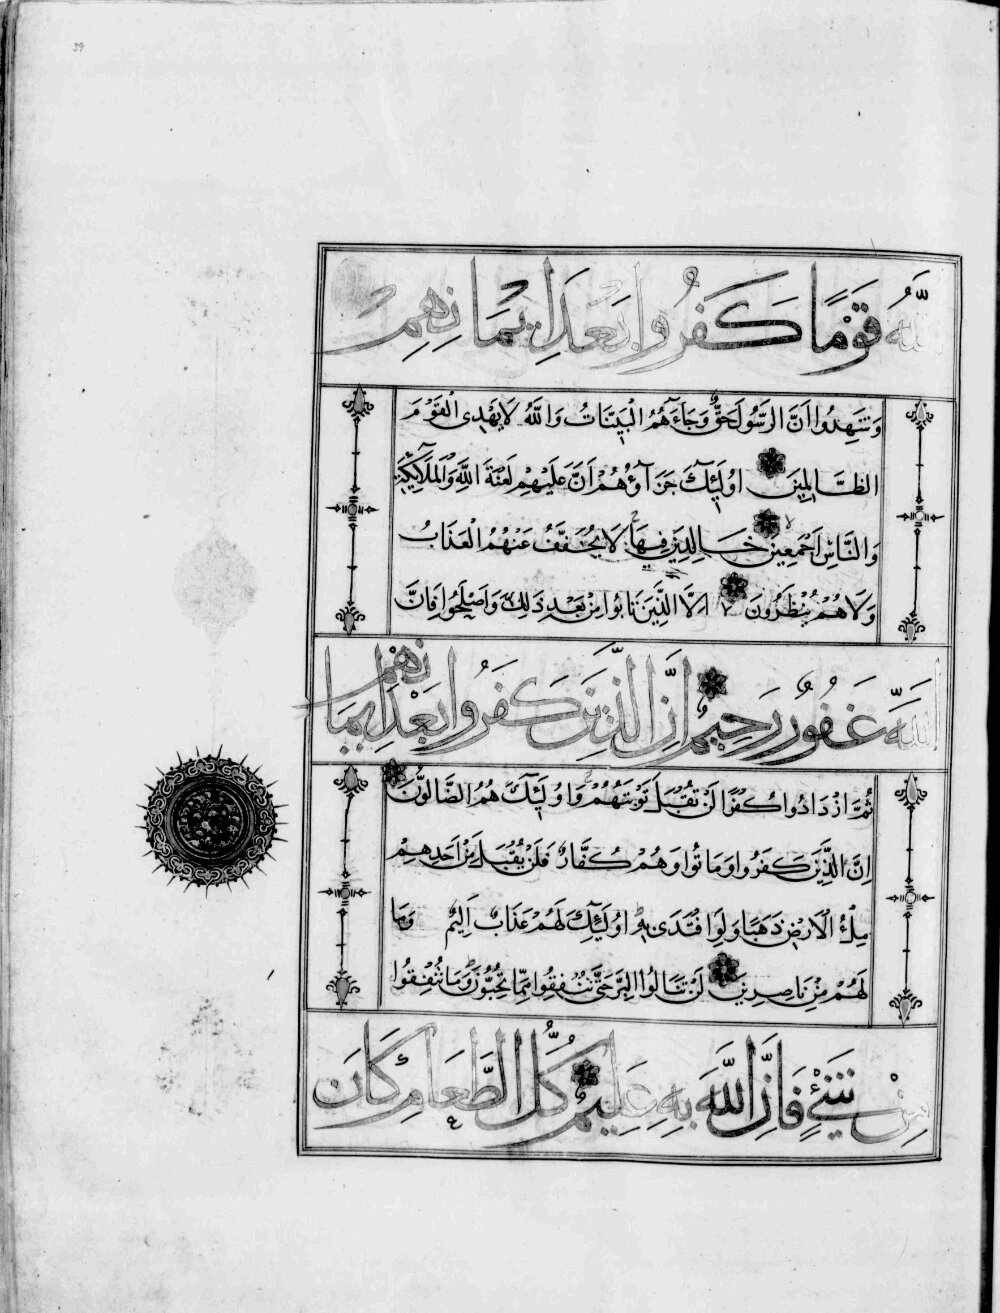 39
اللَّهُ قَوْمًا كَفَرُوا بَعْدَ اِيمَانِهِمْ
وَشَهِدُوا اَنَّ الرَّسُولَ حَقٌّ وَجَاءَهُمُ الْبَيِّنَاتُ وَاللَّهُ لَا يَهْدِى الْقَوْمَ
الظَّالِمِينَ اُولَئِكَ جَزَآؤُهُمْ اَنَّ عَلَيْهِمْ لَعْنَةَ اللَّهِ وَالْمَلَآئِكَةِ
وَالنَّاسِ اَجْمَعِينَ خَالِدِينَ فِيهَا لَا يُخَفَّفُ عَنْهُمُ الْعَذَابُ
وَلَا هُمْ يُنْظَرُونَ اِلَّا الَّذِينَ تَابُوا مِنْ بَعْدِ ذَلِكَ وَاَصْلَحُوا فَاِنَّ
اللَّهَ غَفُورٌ رَحِيمٌ اِنَّ الَّذِينَ كَفَرُوا بَعْدَ اِيمَانِهِمْ
ثُمَّ ازْدَادُوا كُفْرًا لَنْ تُقْبَلَ تَوْبَتُهُمْ وَاُولَئِكَ هُمُ الضَّالُّونَ
اِنَّ الَّذِينَ كَفَرُوا وَمَاتُوا وَهُمْ كُفَّارٌ فَلَنْ يُقْبَلَ مِنْ اَحَدِهِمْ
مِلْءُ الْاَرْضِ ذَهَبًا وَلَوِ افْتَدَى بِهِ اُولَئِكَ لَهُمْ عَذَابٌ اَلِيمٌ وَمَا
لَهُمْ مِنْ نَاصِرِينَ لَنْ تَنَالُوا الْبِرَّ حَتَّى تُنْفِقُوا مِمَّا تُحِبُّونَ وَمَا تُنْفِقُوا
مِنْ شَيْءٍ فَاِنَّ اللَّهَ بِهِ عَلِيمٌ كُلُّ الطَّعَامِ كَانَ